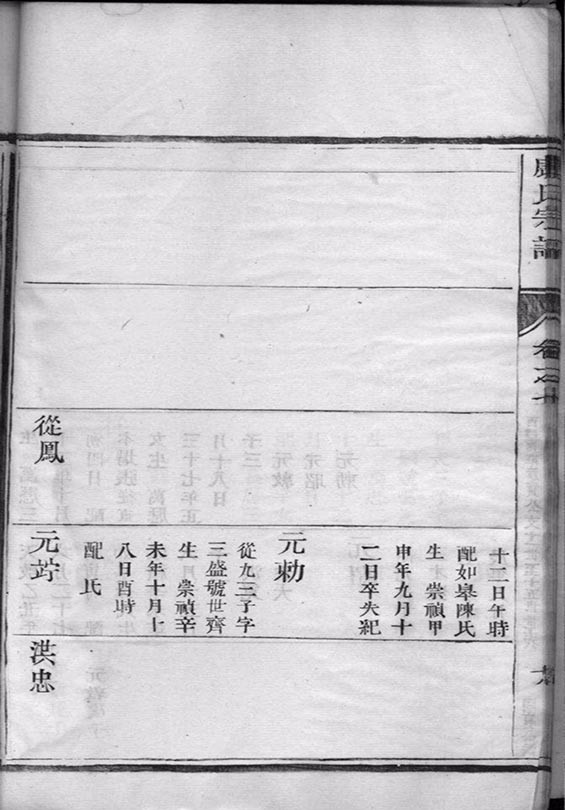 盧氏宗譜
卷之廿
十二日午時
配如皋陳氏
生崇禎甲
申年九月十
二日卒失紀
元勅
從九三子字
三盛號世齊
生崇禎辛
未年十月十
八日酉時
配氏
從鳳
元竛
洪忠